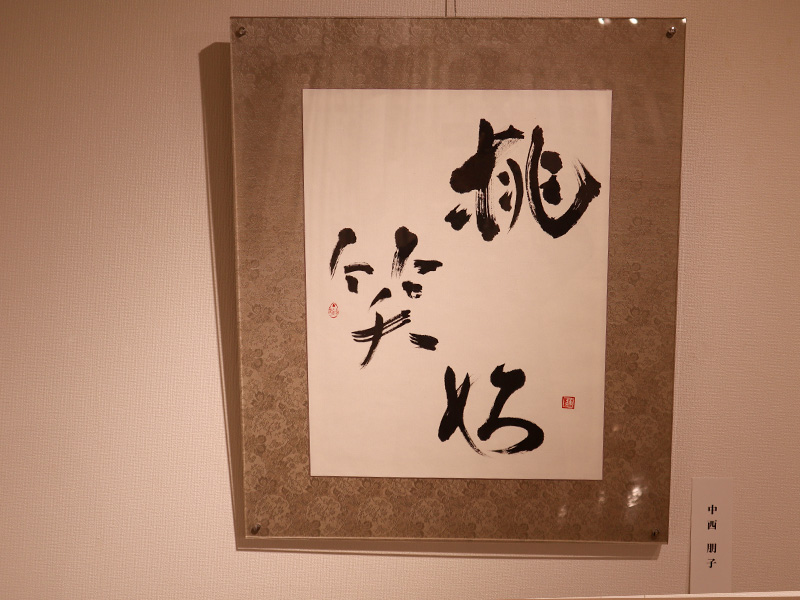 桃始
笑
中西 朋子